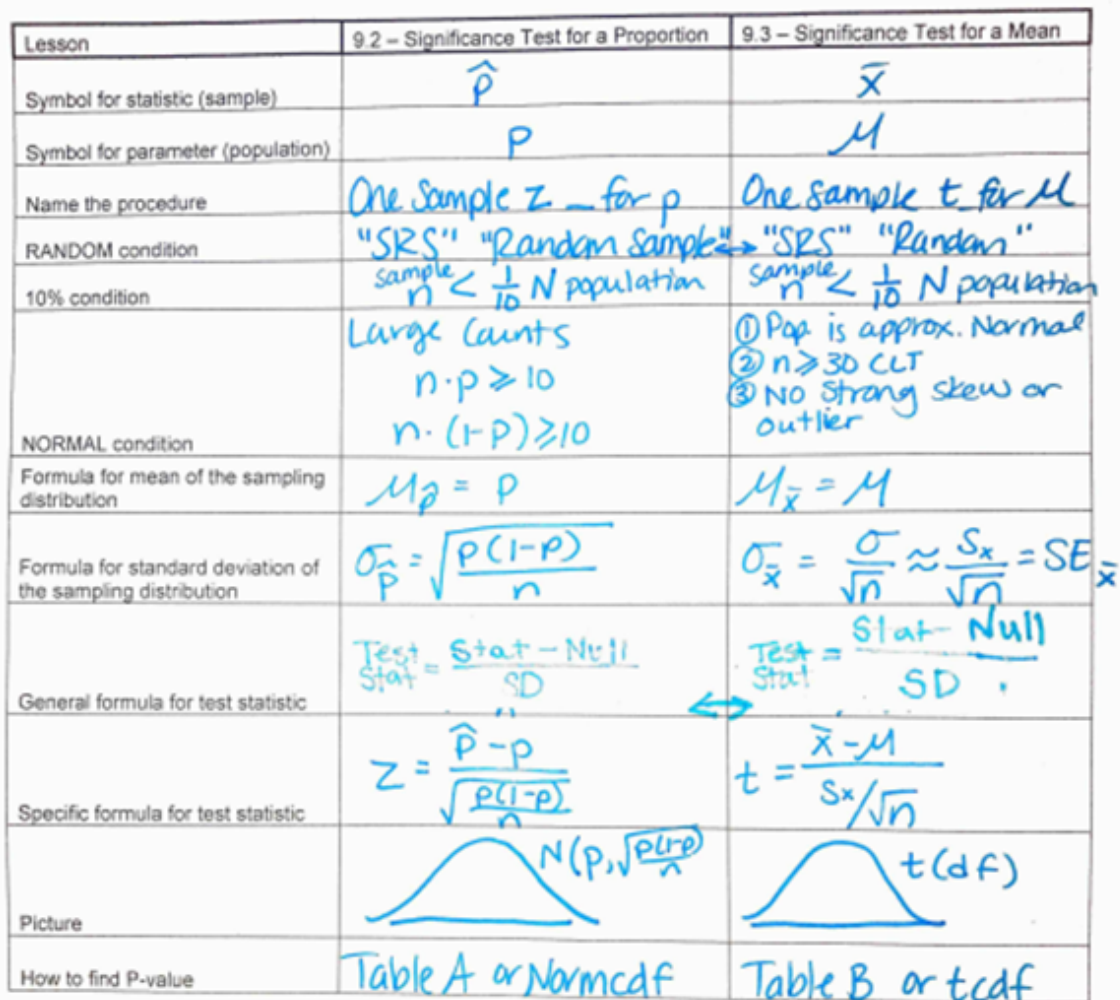 Lesson 9.2 – Significance Test for a Proportion 9.3 – Significance Test for a Mean
Symbol for statistic (sample) p̂ x̄
Symbol for parameter (population) p μ
Name the procedure One Sample z _ for p One sample t_for μ
RANDOM condition "SRS" "Random Sample" ↔ "SRS" "Random"
10% condition sample n < 1/10 N population sample n < 1/10 N population
Large Counts ① Pop is approx. Normal
n·p ≥ 10 ② n ≥ 30 CLT
n·(1-p) ≥ 10 ③ No Strong skew or
outlier
NORMAL condition
Formula for mean of the sampling
distribution μ_p̂ = p μ_x̄ = μ
Formula for standard deviation of
the sampling distribution σ_p̂ = √(p(1-p)/n) σ_x̄ = σ/√n ≈ Sx/√n = SE_x̄
General formula for test statistic Test Stat = (Stat - Null)/SD ↔ Test Stat = (Stat - Null)/SD
Specific formula for test statistic z = (p̂ - p)/√(p(1-p)/n) t = (x̄ - μ)/(Sx/√n)
Picture N(p, √(p(1-p)/n) t(df)
How to find P-value Table A or Normcdf Table B or tcdf